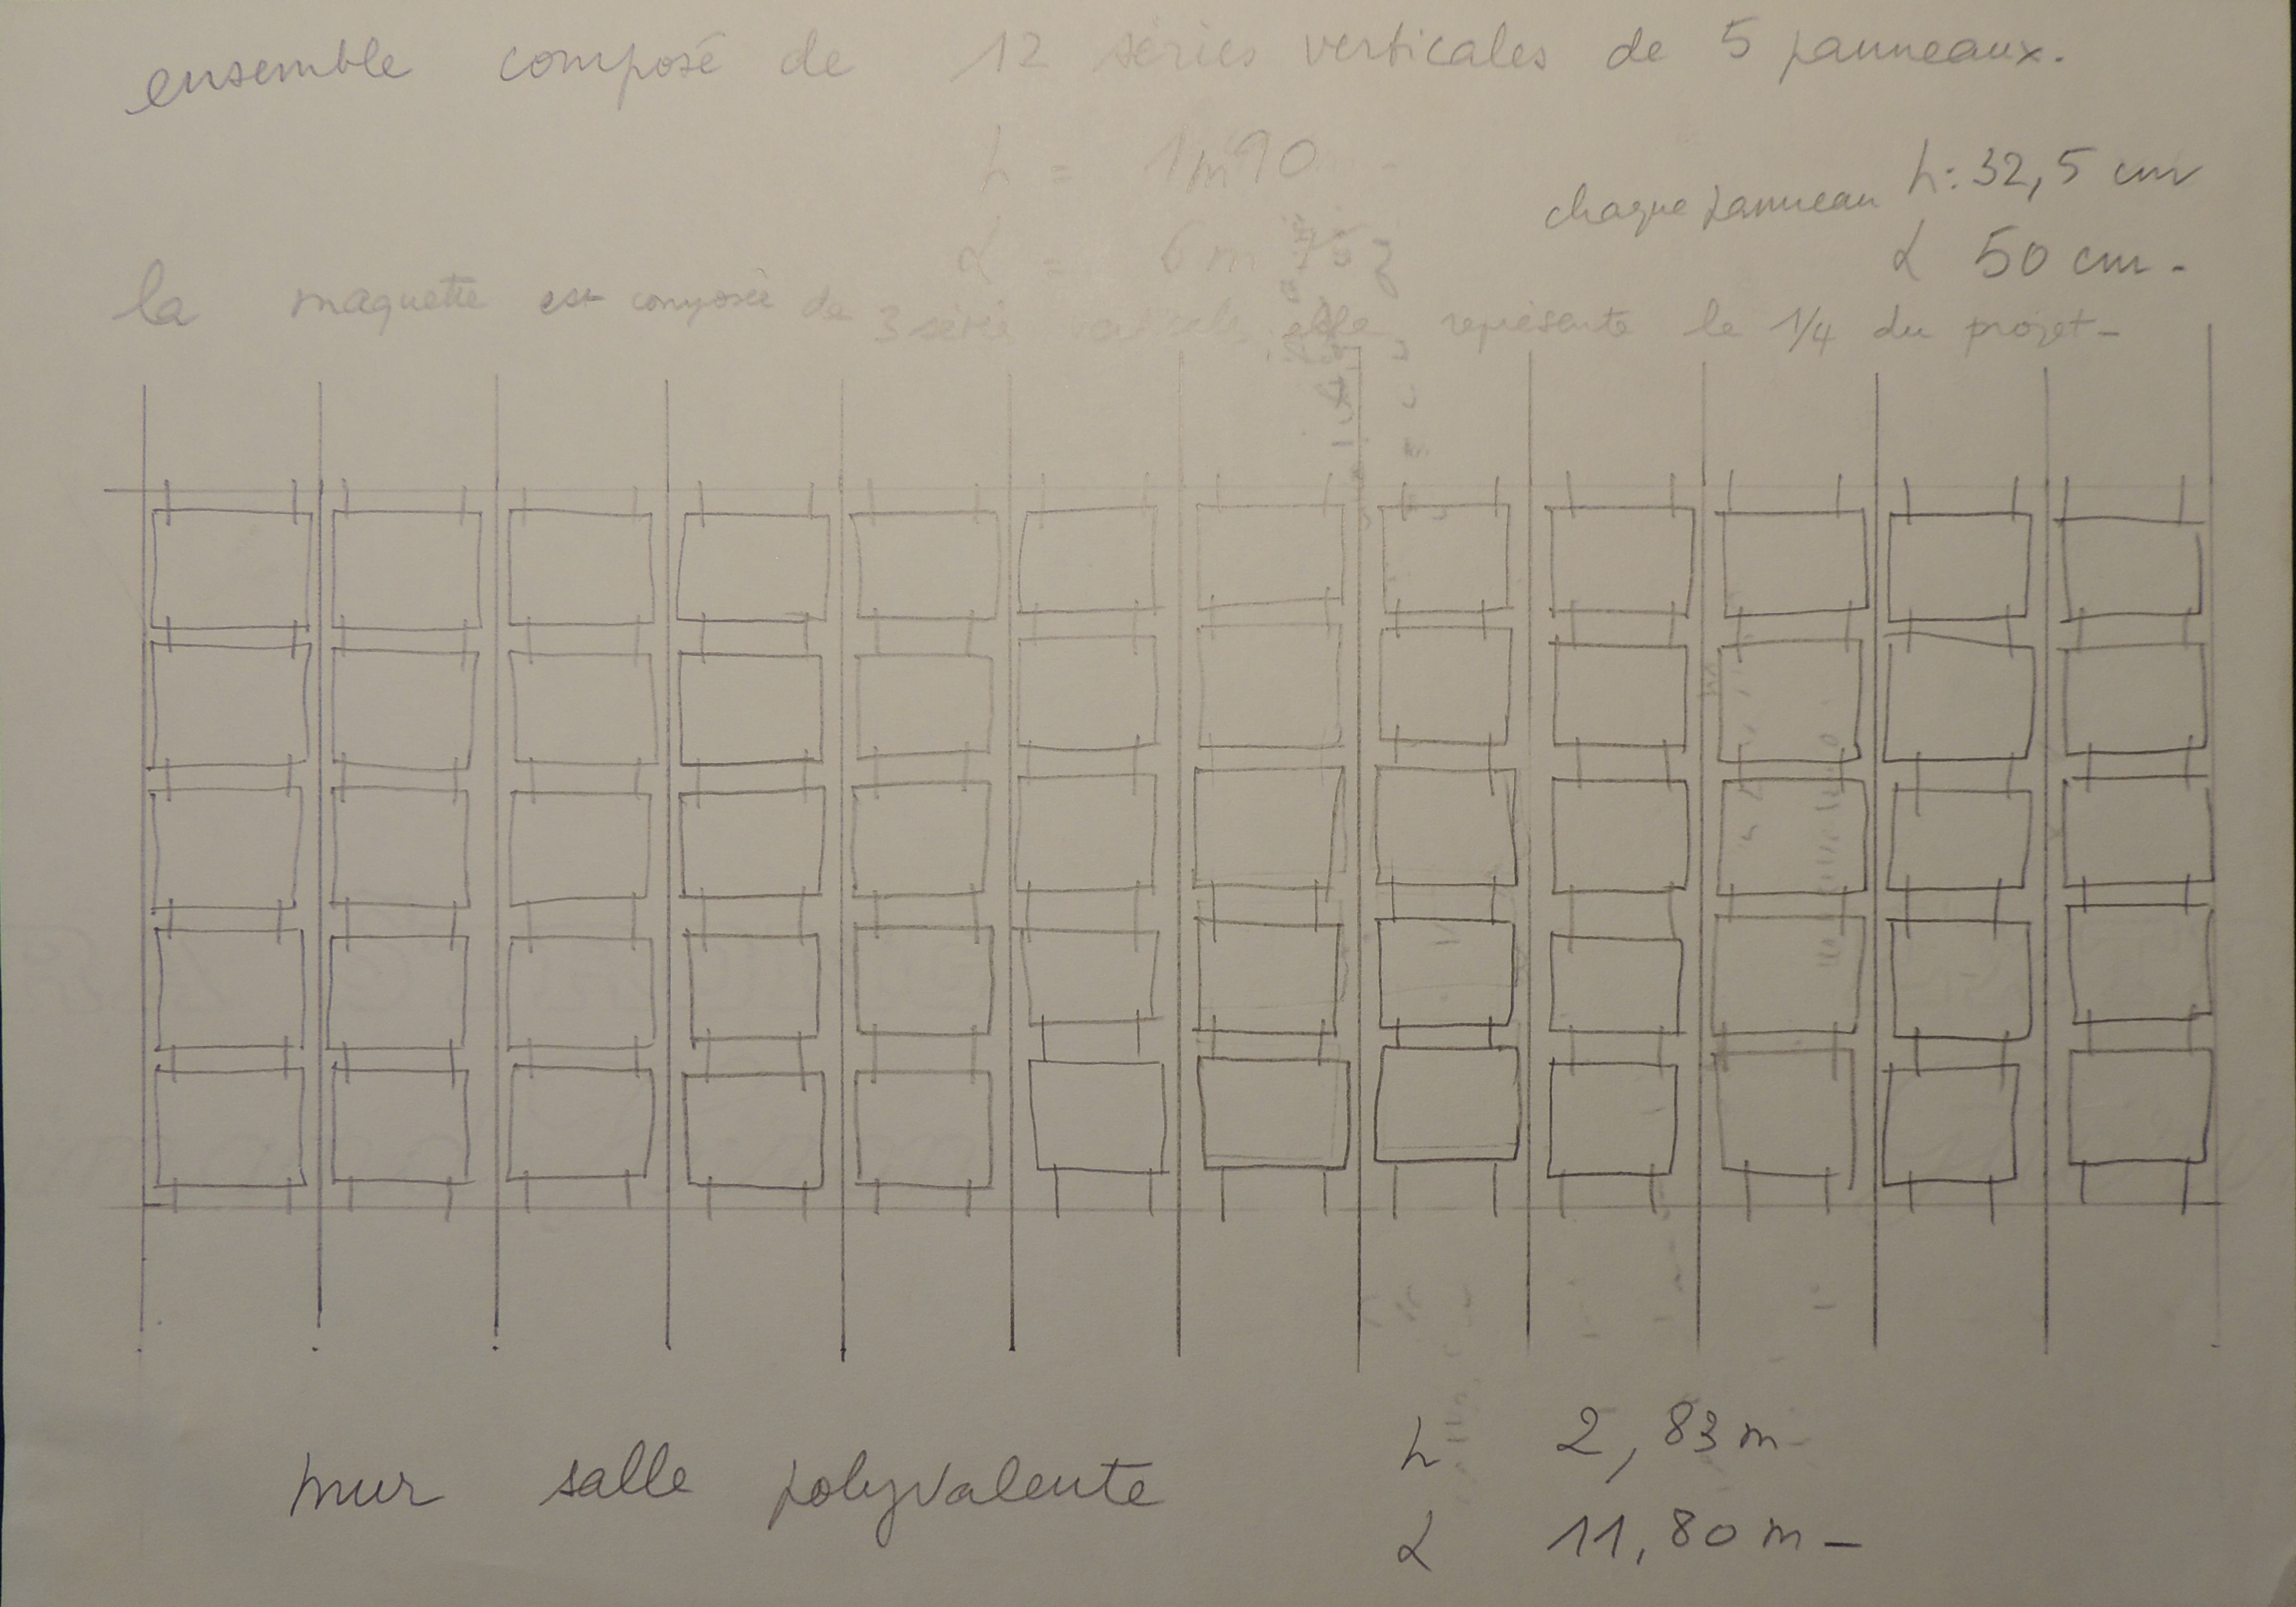 ensemble composé de 12 séries verticales de 5 panneaux.
h = 1m90
chaque panneau h: 32,5 cm
L 50 cm -
L = 6m
la maquette est composée de 3 série verticale, elle représente le 1/4 du projet -
mur salle polyvalente
h 2,83 m -
L 11,80 m -